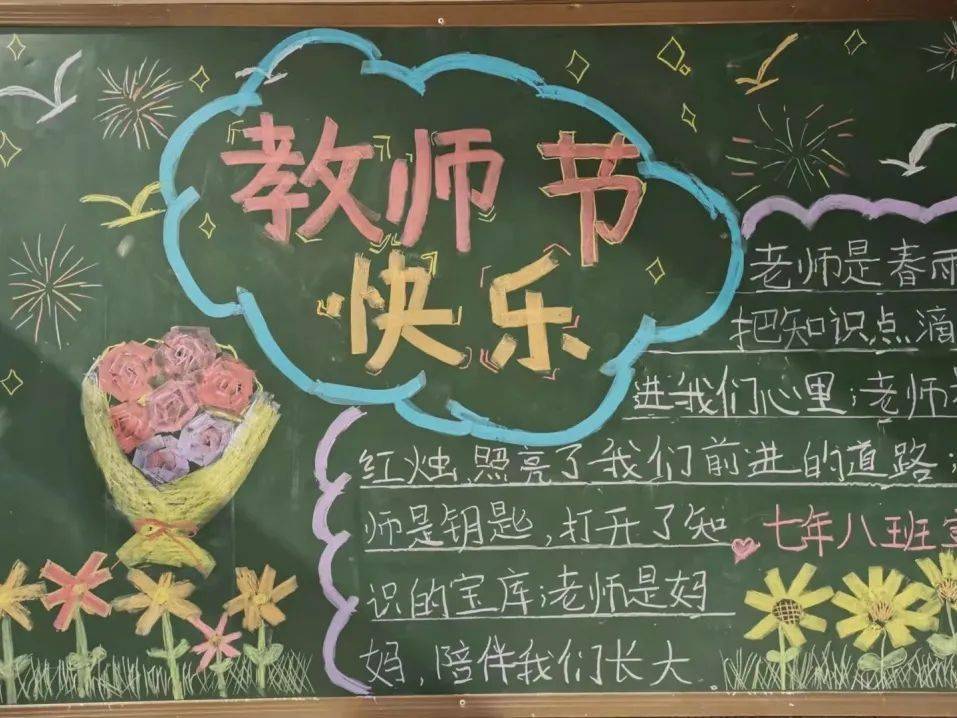 教师节
快乐
老师是春雨
把知识点滴
进我们心里；老师
红烛，照亮了我们前进的道路；
师是钥匙，打开了知
识的宝库；老师是妈
妈，陪伴我们长大
七年八班